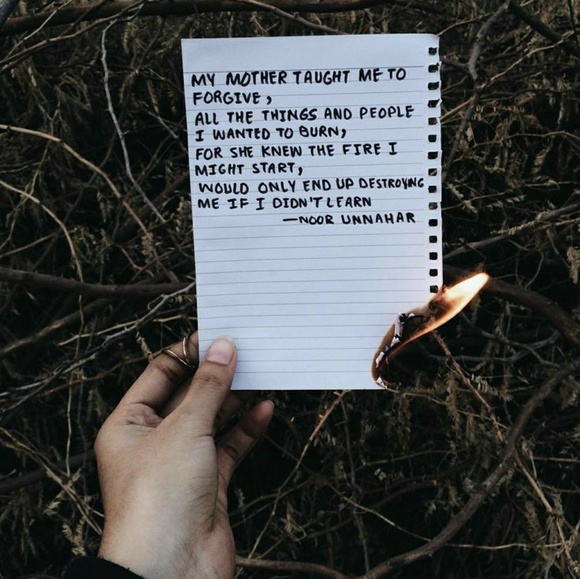 MY MOTHER TAUGHT ME TO
FORGIVE,
ALL THE THINGS AND PEOPLE
I WANTED TO BURN,
FOR SHE KNEW THE FIRE I
MIGHT START,
WOULD ONLY END UP DESTROYING
ME IF I DIDN'T LEARN
—NOOR UNNAHAR